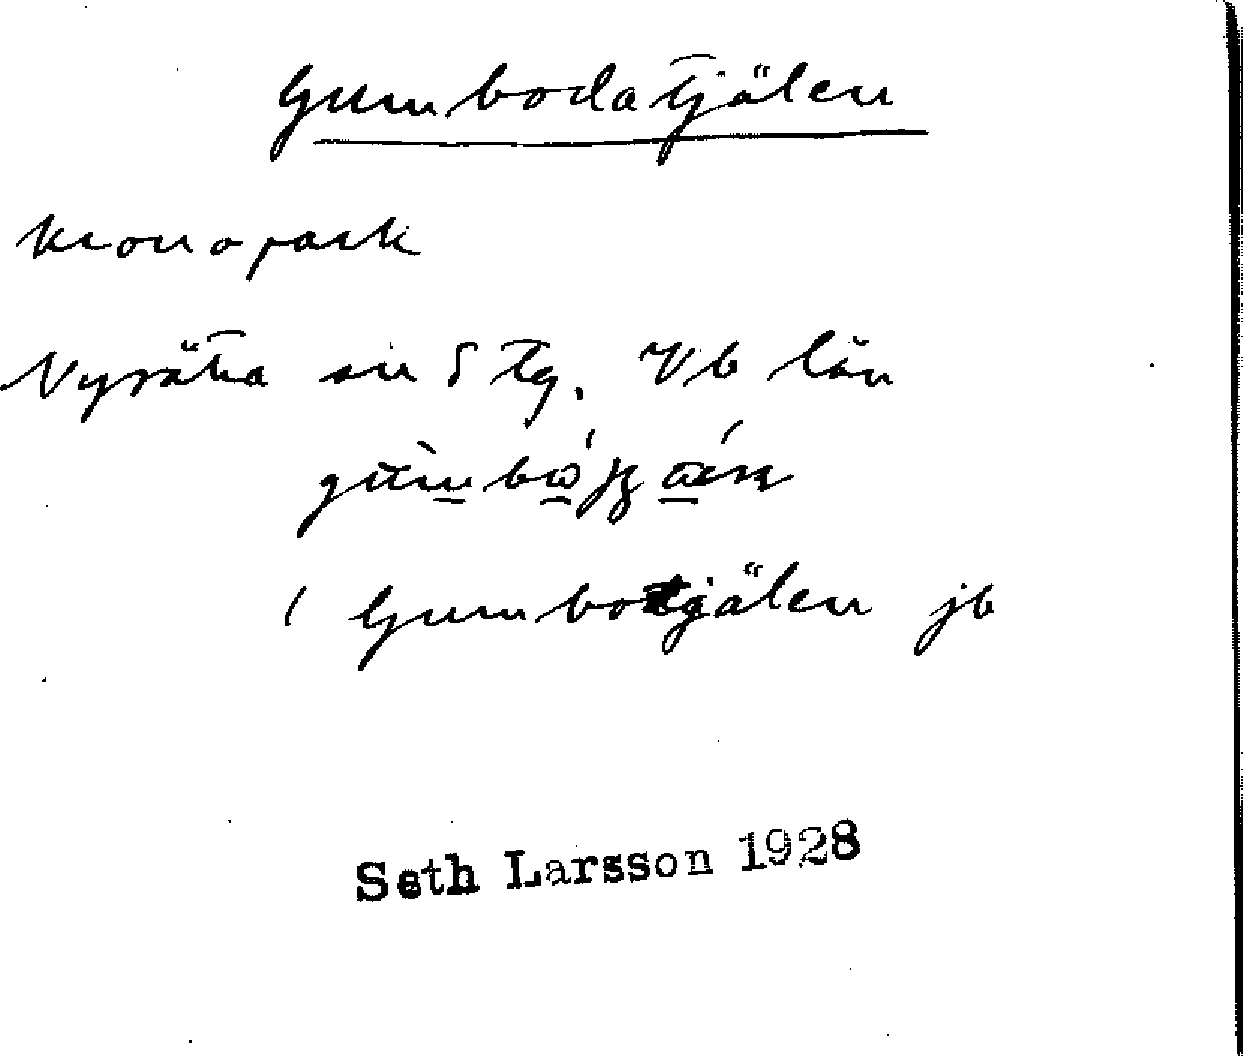 Gumbodatjälen
kronopark
Nysätra sn S tg. Vb län
( Gumbotjälen jb
Seth Larsson 1928